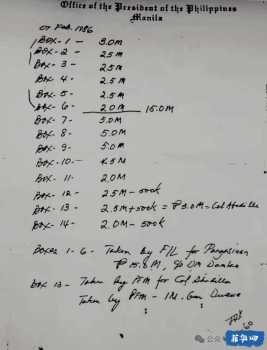 Office of the President of the Philippines
Manila
07 Feb. 1986
Box - 1 - 3.0M
Box - 2 - 2.5M
Box - 3 - 2.5M
Box - 4 - 2.5M
Box - 5 - 2.5M
Box - 6 - 2.0M 15.0M
Box - 7 - 5.0M
Box - 8 - 5.0M
Box - 9 - 5.0M
Box - 10 - 4.5M
Box - 11 2.0M
Box - 12 - 2.5M - 500K
Box - 13 - 2.5M + 500K = ₱3.0M - Col
Box - 14 - 2.0M - 500K
Boxes 1-6 - Taken by F/L for Pangasinan
₱ 15.0M, % DM
Box 13 - Taken by PFM for Col
Taken by PFM - Gen